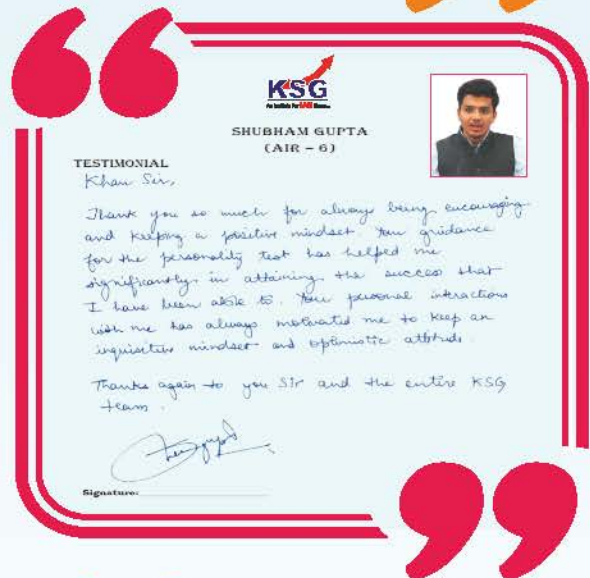 KSG
An Institute For IAS
SHUBHAM GUPTA
(AIR – 6)
TESTIMONIAL
Khan Sir,
Thank you so much for always being encouraging
and keeping a positive mindset. Your guidance
for the personality test has helped me
significantly in attaining the success that
I have been able to. Your personal interactions
with me has always motivated me to keep an
inquisitive mindset and optimistic attitude.
Thanks again to you Sir and the entire KSG
team.
Signature: